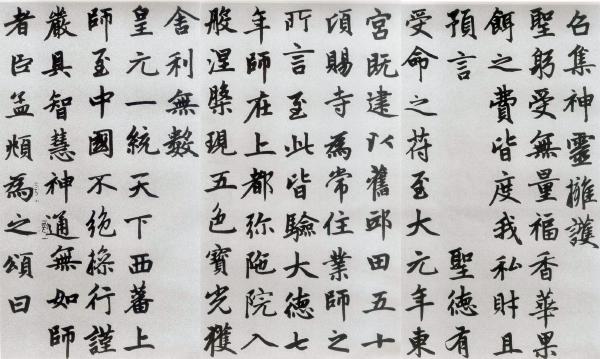 召集神靈擁護
聖躬受無量福香華果
餌之費皆度我私財且
預言 聖德有
受命之苻至大元年東
宮既建以舊邸田五十
頃賜寺為常住業師之
所言至此皆驗大德七
年師在上都弥陁院入
般涅槃現五色寶光獲
舍利無數
皇元一統天下西蕃上
師至中國不絕操行謹
嚴具智慧神通無如師
者臣孟頫為之頌曰